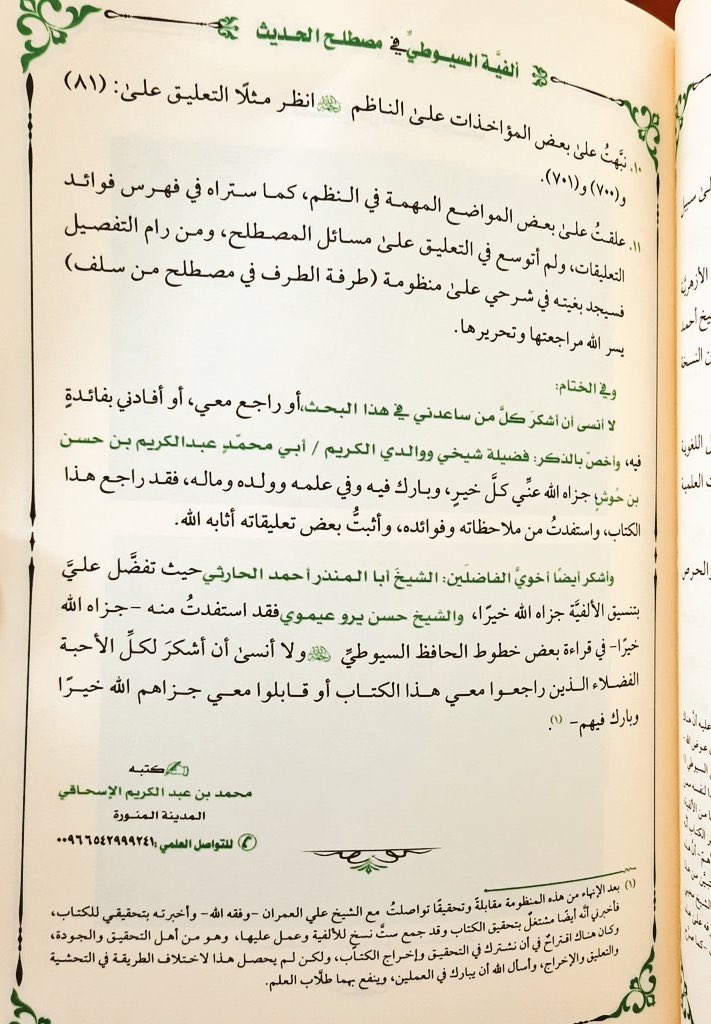 ألفيَّة السيوطيِّ في مصطلح الحديث
١٠. نبَّهتُ علىٰ بعض المؤاخذات علىٰ الناظم ﵀ انظر مثلًا التعليق علىٰ: (٨١)
و(٧٠٠) و(٧٠١).
١١. علقتُ علىٰ بعض المواضع المهمة في النظم، كما ستراه في فهرس فوائد
التعليقات، ولم أتوسع في التعليق علىٰ مسائل المصطلح، ومن رام التفصيل
فسيجد بغيته في شرحي علىٰ منظومة (طرفة الطرف في مصطلح من سلف)
يسر الله مراجعتها وتحريرها.
وفي الختام:
لا أنسى أن أشكرَ كلَّ من ساعدني في هذا البحث، أو راجع معي، أو أفادني بفائدةٍ
فيه، وأخصّ بالذكر: فضيلة شيخي ووالدي الكريم / أبي محمّدٍ عبدالكريم بن حسن
بن حُوشٍ جزاه الله عنِّي كلَّ خيرٍ، وبارك فيه وفي علمه وولده وماله، فقد راجع هذا
الكتاب، واستفدتُ من ملاحظاته وفوائده، وأثبتُّ بعض تعليقاته أثابه الله.
وأشكر أيضًا أخويَّ الفاضلَين: الشيخَ أبا المنذر أحمد الحارثي حيث تفضَّل عليَّ
بتنسيق الألفيَّة جزاه الله خيرًا، والشيخ حسن يرو عيموي فقد استفدتُ منه -جزاه الله
خيرًا- في قراءة بعض خطوط الحافظ السيوطيِّ ﵀ ولا أنسىٰ أن أشكرَ لكلِّ الأحبة
الفضلاء الذين راجعوا معي هذا الكتاب أو قابلوا معي جزاهم الله خيرًا
وبارك فيهم- (١).
كتبه
محمد بن عبد الكريم الإسحاقي
المدينة المنورة
للتواصل العلمي: ٠٠٩٦٦٥٤٢٩٩٩٢٤١
(١) بعد الإنهاء من هذه المنظومة مقابلةً وتحقيقًا تواصلتُ مع الشيخ علي العمران -وفقه الله- وأخبرته بتحقيقي للكتاب،
فأخبرني أنَّه أيضًا مشتغلٌ بتحقيق الكتاب وقد جمع ستَّ نسخٍ للألفية وعمل عليها، وهو من أهل التحقيق والجودة،
وكان هناك اقتراحٌ في أن نشترك في التحقيق وإخراج الكتاب، ولكن لم يحصل هذا لاختلاف الطريقة في التحشية
والتعليق والإخراج، وأسأل الله أن يبارك في العملين، وينفع بهما طلَّاب العلم.